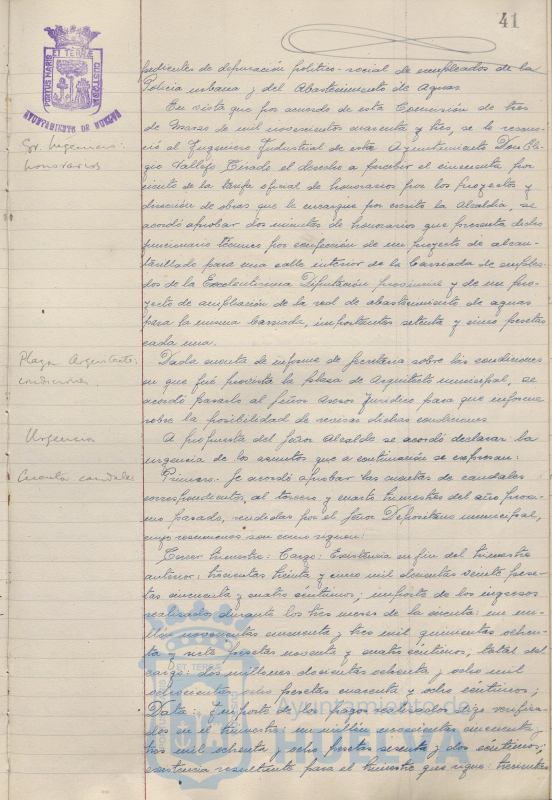 41
PORTUS MARIS ET TERRÆ CUSTODIA
AYUNTAMIENTO DE HUELVA
pedientes de depuración político-social de empleados de la
Policía urbana y del Abastecimiento de Aguas
Sr. Ingeniero:
honorarios
En vista que por acuerdo de esta Comisión de tres
de Marzo de mil novecientos cuarenta y tres, se le recono-
ció al Ingeniero Industrial de este Ayuntamiento Don
Vallejo el derecho a percibir el cincuenta por
ciento de la tarifa oficial de honorarios por los proyectos y
dirección de obras que le encargue por escrito la Alcaldía, se
acordó aprobar dos minutas de honorarios que presenta dicho
funcionario técnico por confección de un proyecto de alcan-
tarillado para una calle interior de la barriada de emplea-
dos de la Excelentísima Diputación provincial y de un pro-
yecto de ampliación de la red de abastecimiento de aguas
para la misma barriada, importantes setenta y cinco pesetas
cada una.
Plaza Arquitecto:
condiciones
Dada cuenta de informe de Secretaría sobre las condiciones
en que fué provista la plaza de Arquitecto municipal, se
acordó pasarlo al Señor Asesor Jurídico para que informe
sobre la posibilidad de revisar dichas condiciones
Urgencia
A propuesta del Señor Alcalde se acordó declarar la
urgencia de los asuntos que a continuación se expresan:
Cuenta caudales
Primero: Se acordó aprobar las cuentas de caudales
correspondientes al tercero y cuarto trimestres del año próxi-
mo pasado, rendidas por el Señor Depositario municipal,
cuyos resúmenes son como siguen:
Tercer trimestre: Cargo: Existencia en fin del trimestre
anterior: trescientas treinta y cinco mil doscientas veinte pese-
tas cincuenta y cuatro céntimos; importe de los ingresos
realizados durante los tres meses de la cuenta: un mi-
llón novecientas cincuenta y tres mil quinientas ochen-
ta y siete pesetas noventa y cuatro céntimos; total del
cargo: dos millones doscientas ochenta y ocho mil
ochocientas ocho pesetas cuarenta y ocho céntimos;
Data: Importe de los pagos realizados digo verifica-
dos en el trimestre: un millón novecientas cincuenta y
tres mil ochenta y ocho pesetas sesenta y dos céntimos;
existencia resultante para el trimestre que sigue: trescientas
Ayuntamiento de
HUELVA